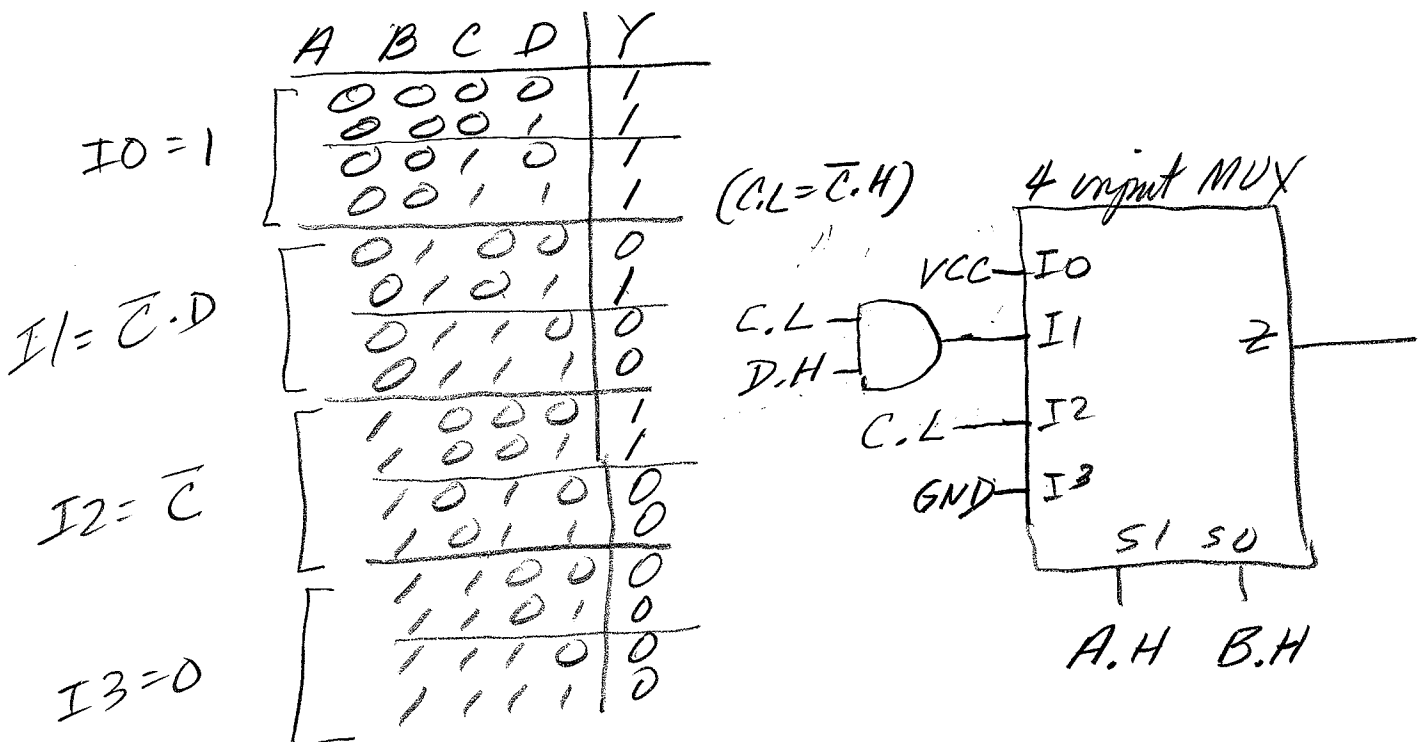 A B C D Y
0 0 0 0 1
0 0 0 1 1
0 0 1 0 1
0 0 1 1 1
0 1 0 0 0
0 1 0 1 1
0 1 1 0 0
0 1 1 1 0
1 0 0 0 1
1 0 0 1 1
1 0 1 0 0
1 0 1 1 0
1 1 0 0 0
1 1 0 1 0
1 1 1 0 0
1 1 1 1 0
I0 = 1
I1 = C̅.D
I2 = C̅
I3 = 0
(C.L = C̅.H)
4 input MUX
VCC I0
C.L
D.H
I1
Z
C.L I2
GND I3
S1 S0
A.H B.H